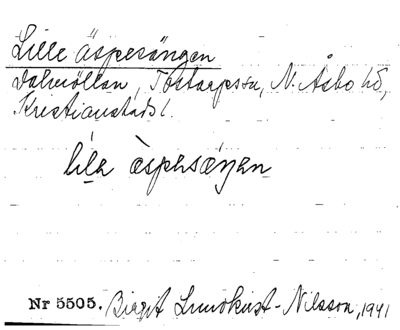 Lille äspesängen
Dalmöllan, Tostarpssn, N. Åsbo hd,
Kristianstads l.
lila äspesæŋen
Nr 5505. Birgit Lundkvist-Nilsson, 1941